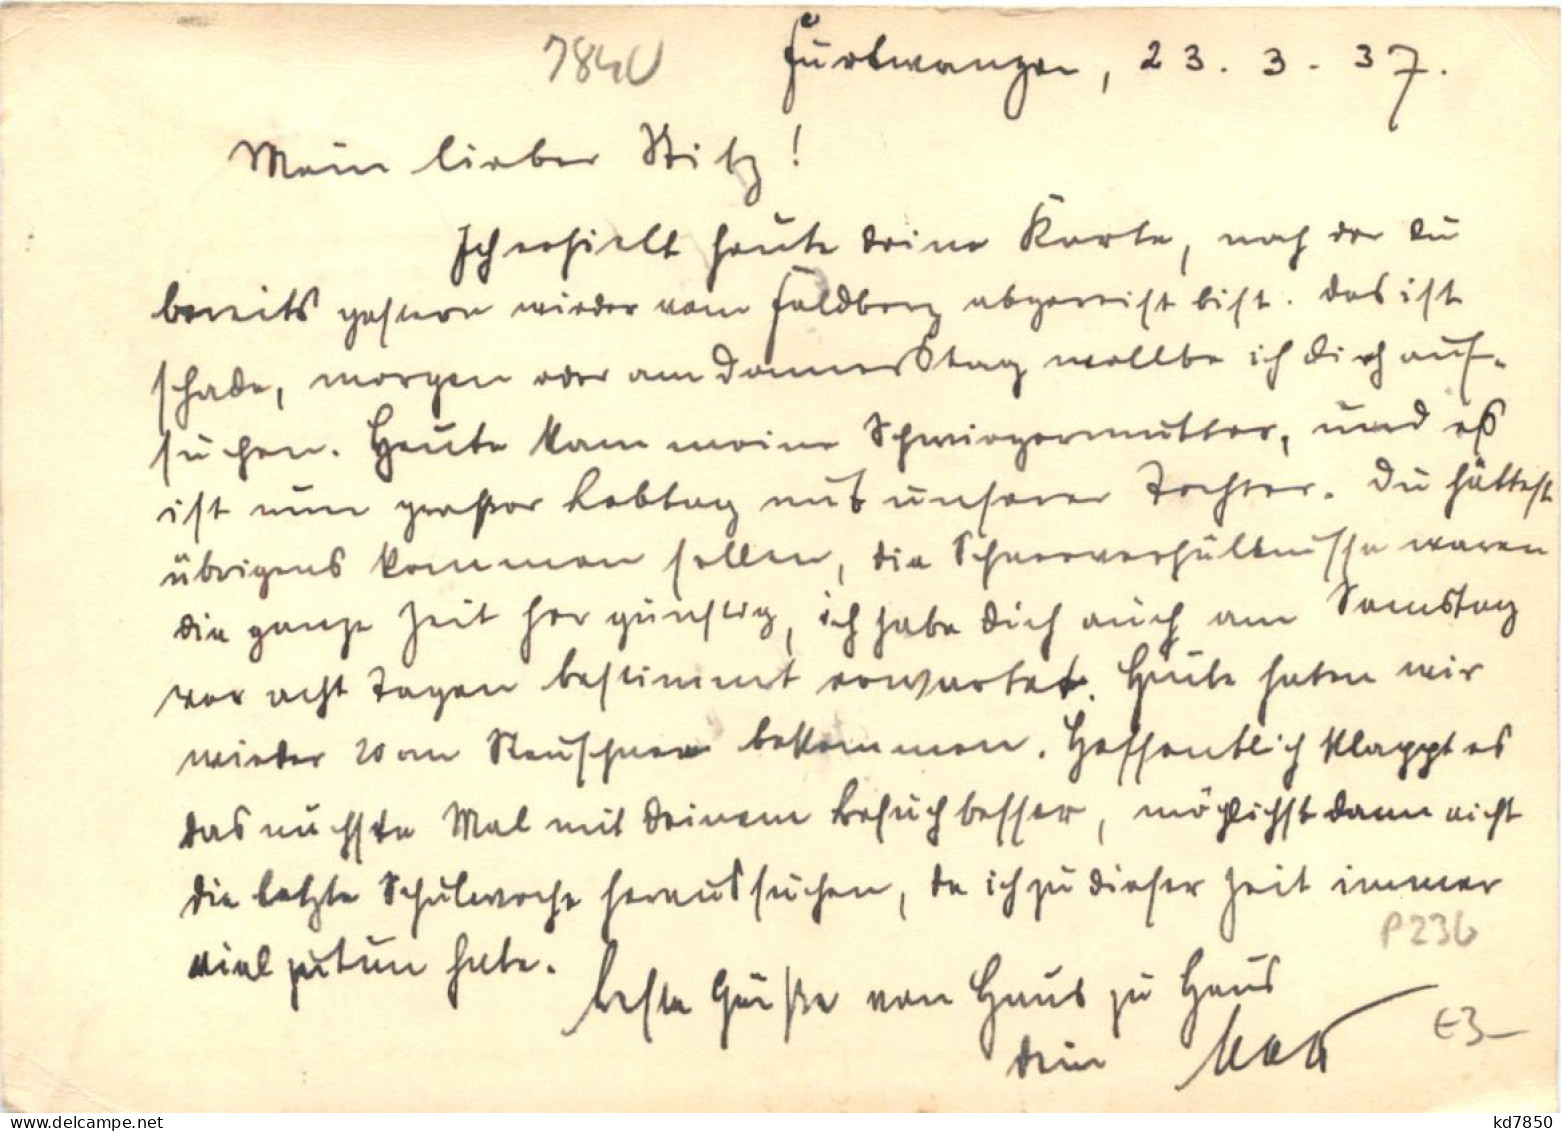 7840
Furtwangen, 23. 3. 37.
Mein lieber Stitz!
Ich erhielt heute deine Karte, nach der du
bereits gestern wieder vom Feldberg abgereist bist. das ist
schade, morgen oder am Donnerstag wollte ich dich auf-
suchen. Heute kam meine Schwiegermutter, und es
ist nun großer Lebtag mit unserer Tochter. Du hättest
übrigens kommen sollen, die Schneeverhältnisse waren
die ganze Zeit her günstig, ich habe dich auch am Samstag
vor acht Tagen bestimmt erwartet. Heute haben wir
wieder 20 cm Neuschnee bekommen. Hoffentlich klappt es
das nächste Mal mit deinem Besuch besser, möglichst dann nicht
die letzte Schulwoche heraussuchen, da ich zu dieser Zeit immer
viel zu tun habe.
P236
Beste Grüße von Haus zu Haus
€3-
dein
kd7850